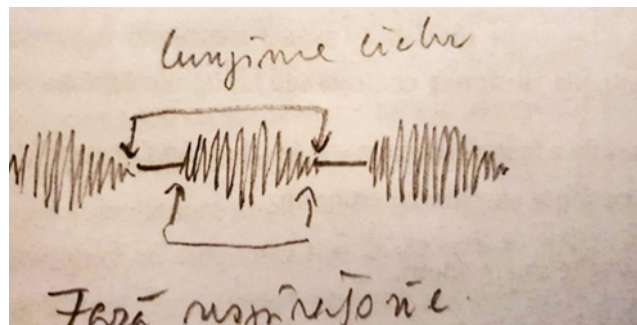 lungime ciclu
Fază respiratorie